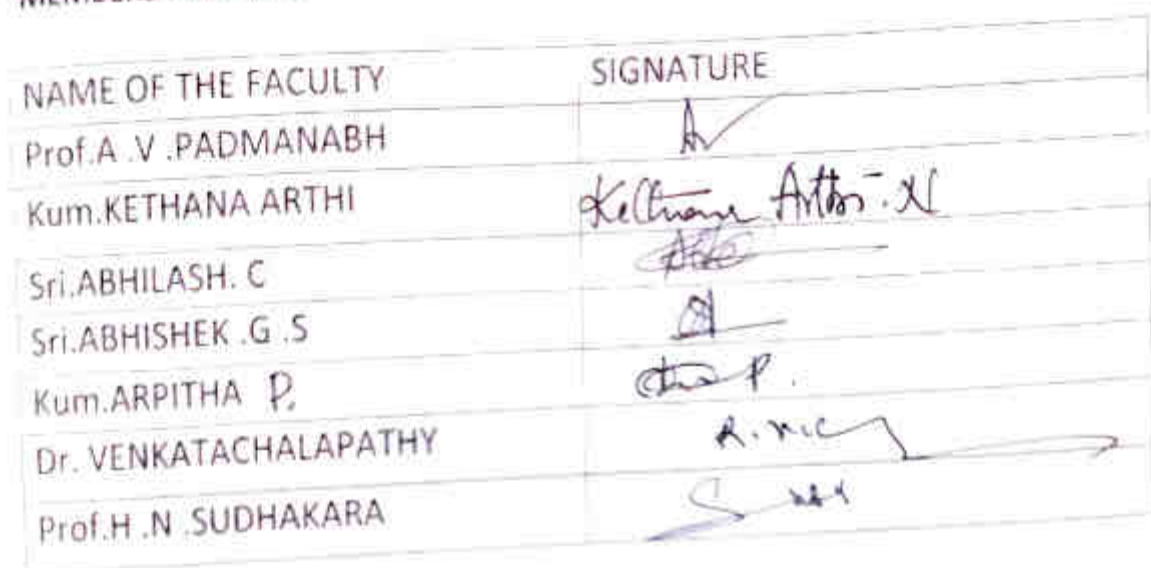 NAME OF THE FACULTY SIGNATURE
Prof.A .V .PADMANABH
Kum.KETHANA ARTHI Kethana Arthi. N
Sri.ABHILASH. C
Sri.ABHISHEK .G .S
Kum.ARPITHA P.
Dr. VENKATACHALAPATHY
Prof.H .N .SUDHAKARA